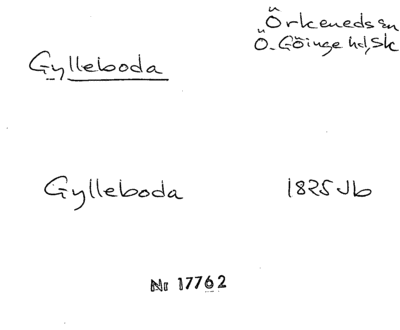 Örkeneds sn
Gylleboda
Ö. Göinge hd, Sk
Gylleboda 1825 Jb
Nr 17762